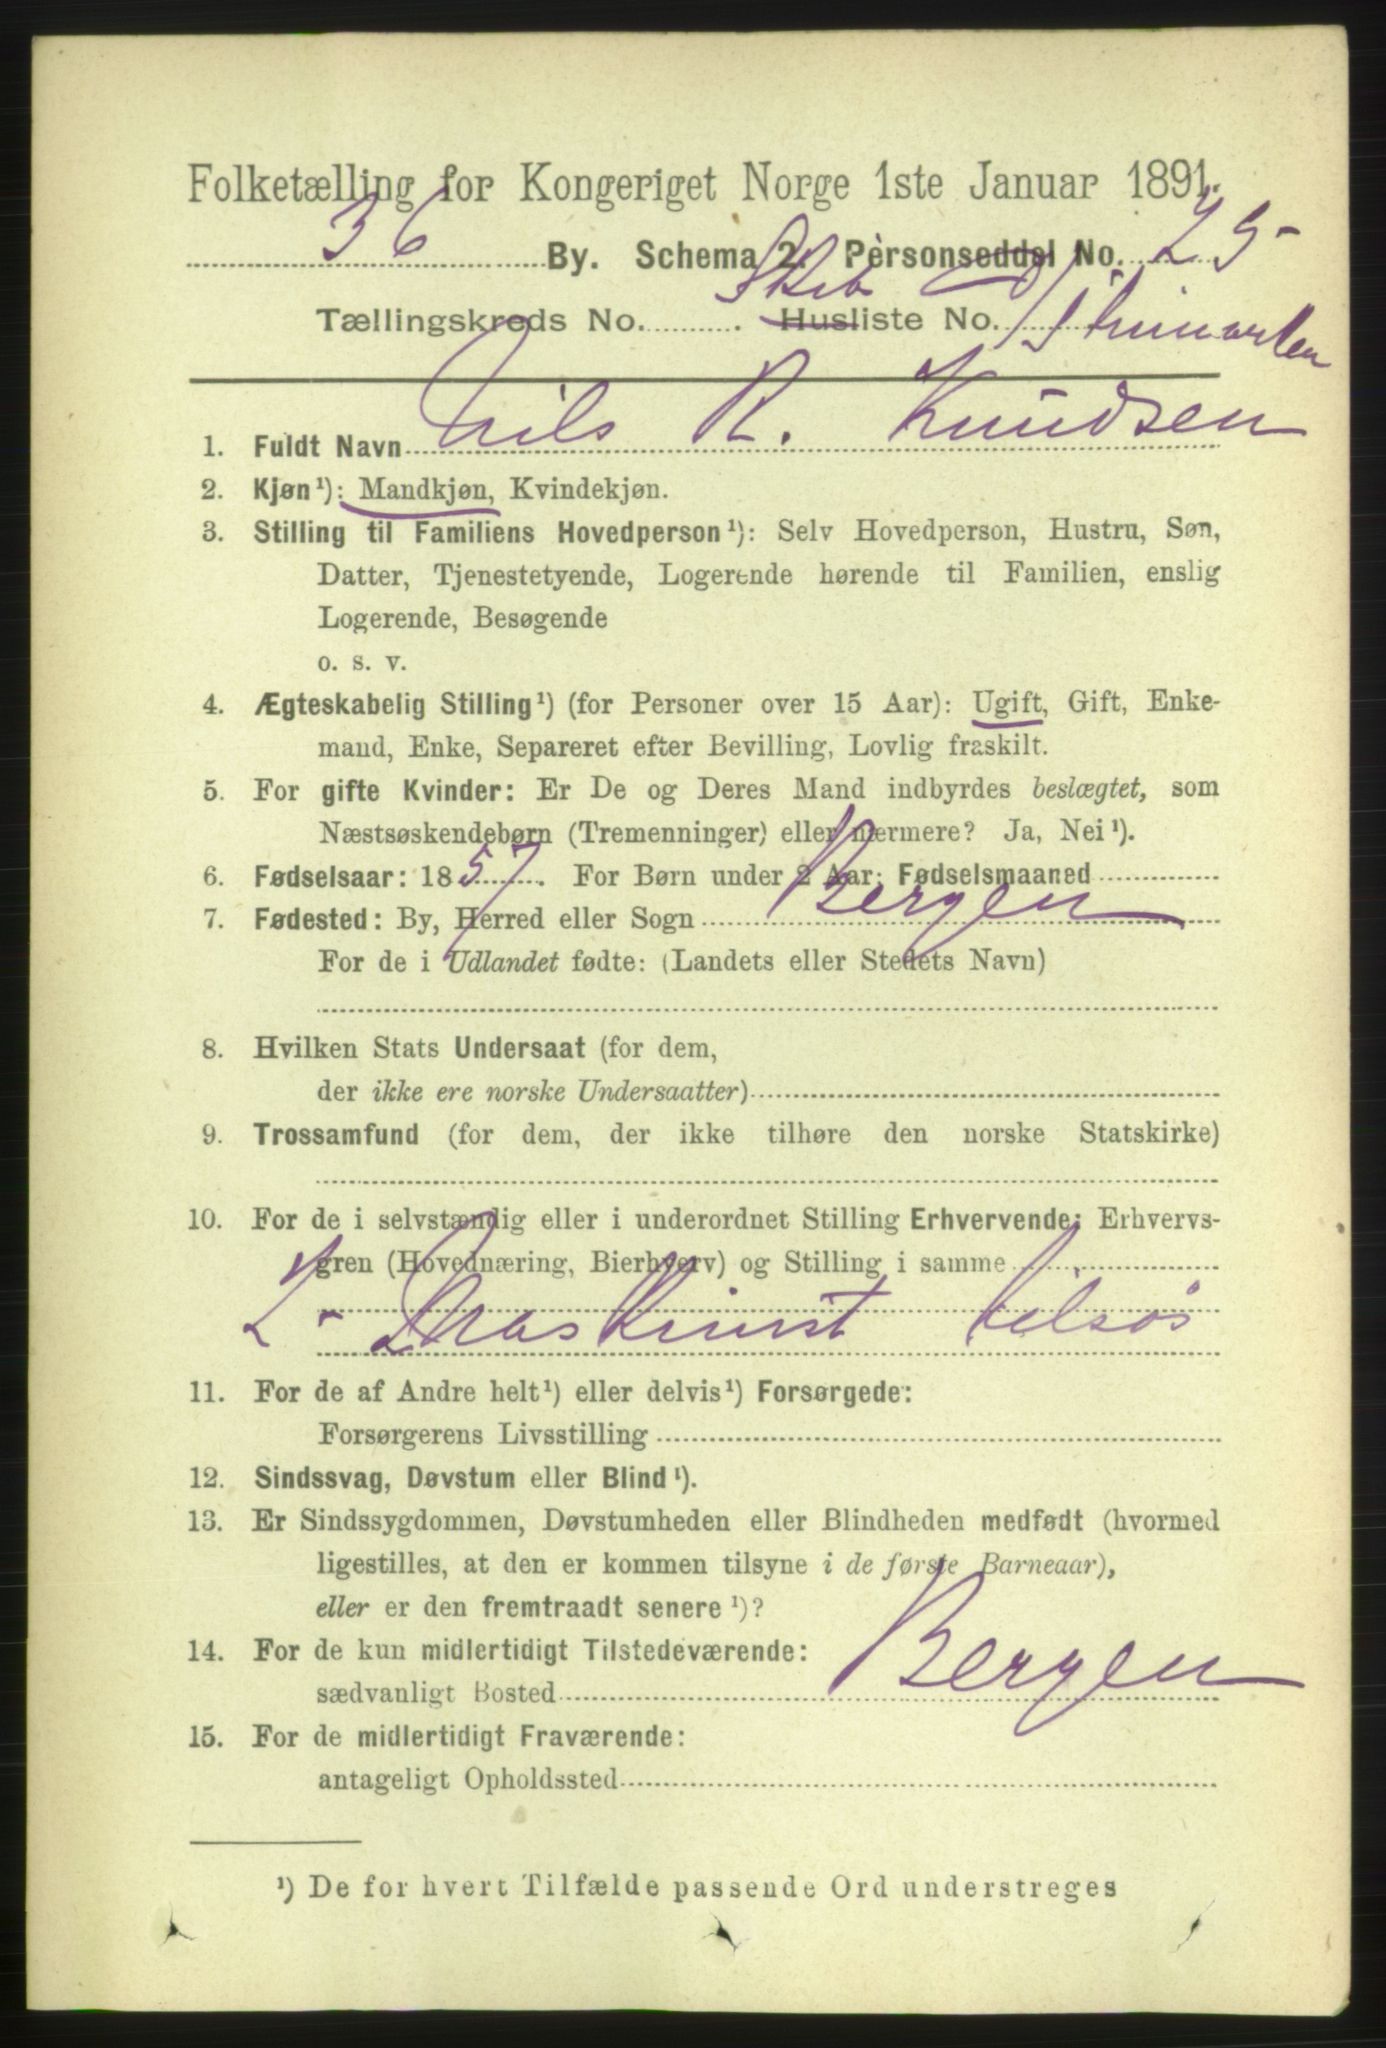 Folketælling for Kongeriget Norge 1ste Januar 1891.
36 By. Schema 2. Personseddel No. 25
Tællingskreds No. Skib Husliste No.
1. Fuldt Navn Nils R. Knudsen
2. Kjøn¹): Mandkjøn, Kvindekjøn.
3. Stilling til Familiens Hovedperson¹): Selv Hovedperson, Hustru, Søn,
Datter, Tjenestetyende, Logerende hørende til Familien, enslig
Logerende, Besøgende
o. s. v.
4. Ægteskabelig Stilling¹) (for Personer over 15 Aar): Ugift, Gift, Enke-
mand, Enke, Separeret efter Bevilling, Lovlig fraskilt.
5. For gifte Kvinder: Er De og Deres Mand indbyrdes beslægtet, som
Næstsøskendebørn (Tremenninger) eller nærmere? Ja, Nei¹).
6. Fødselsaar: 1857. For Børn under 2 Aar: Fødselsmaaned
7. Fødested: By, Herred eller Sogn Bergen
For de i Udlandet fødte: (Landets eller Stedets Navn)
8. Hvilken Stats Undersaat (for dem,
der ikke ere norske Undersaatter)
9. Trossamfund (for dem, der ikke tilhøre den norske Statskirke)
10. For de i selvstændig eller i underordnet Stilling Erhvervende: Erhvervs-
gren (Hovednæring, Bierhverv) og Stilling i samme
2- Maskinist tilsøs
11. For de af Andre helt¹) eller delvis¹) Forsørgede:
Forsørgerens Livsstilling
12. Sindssvag, Døvstum eller Blind¹).
13. Er Sindssygdommen, Døvstumheden eller Blindheden medfødt (hvormed
ligestilles, at den er kommen tilsyne i de første Barneaar),
eller er den fremtraadt senere¹)?
14. For de kun midlertidigt Tilstedeværende:
sædvanligt Bosted Bergen
15. For de midlertidigt Fraværende:
antageligt Opholdssted
¹) De for hvert Tilfælde passende Ord understreges